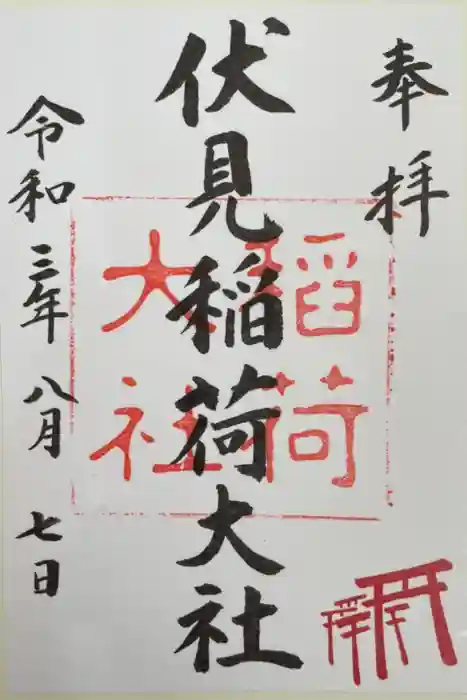 奉拝
伏見稲荷大社
稲荷
大社
令和三年八月七日